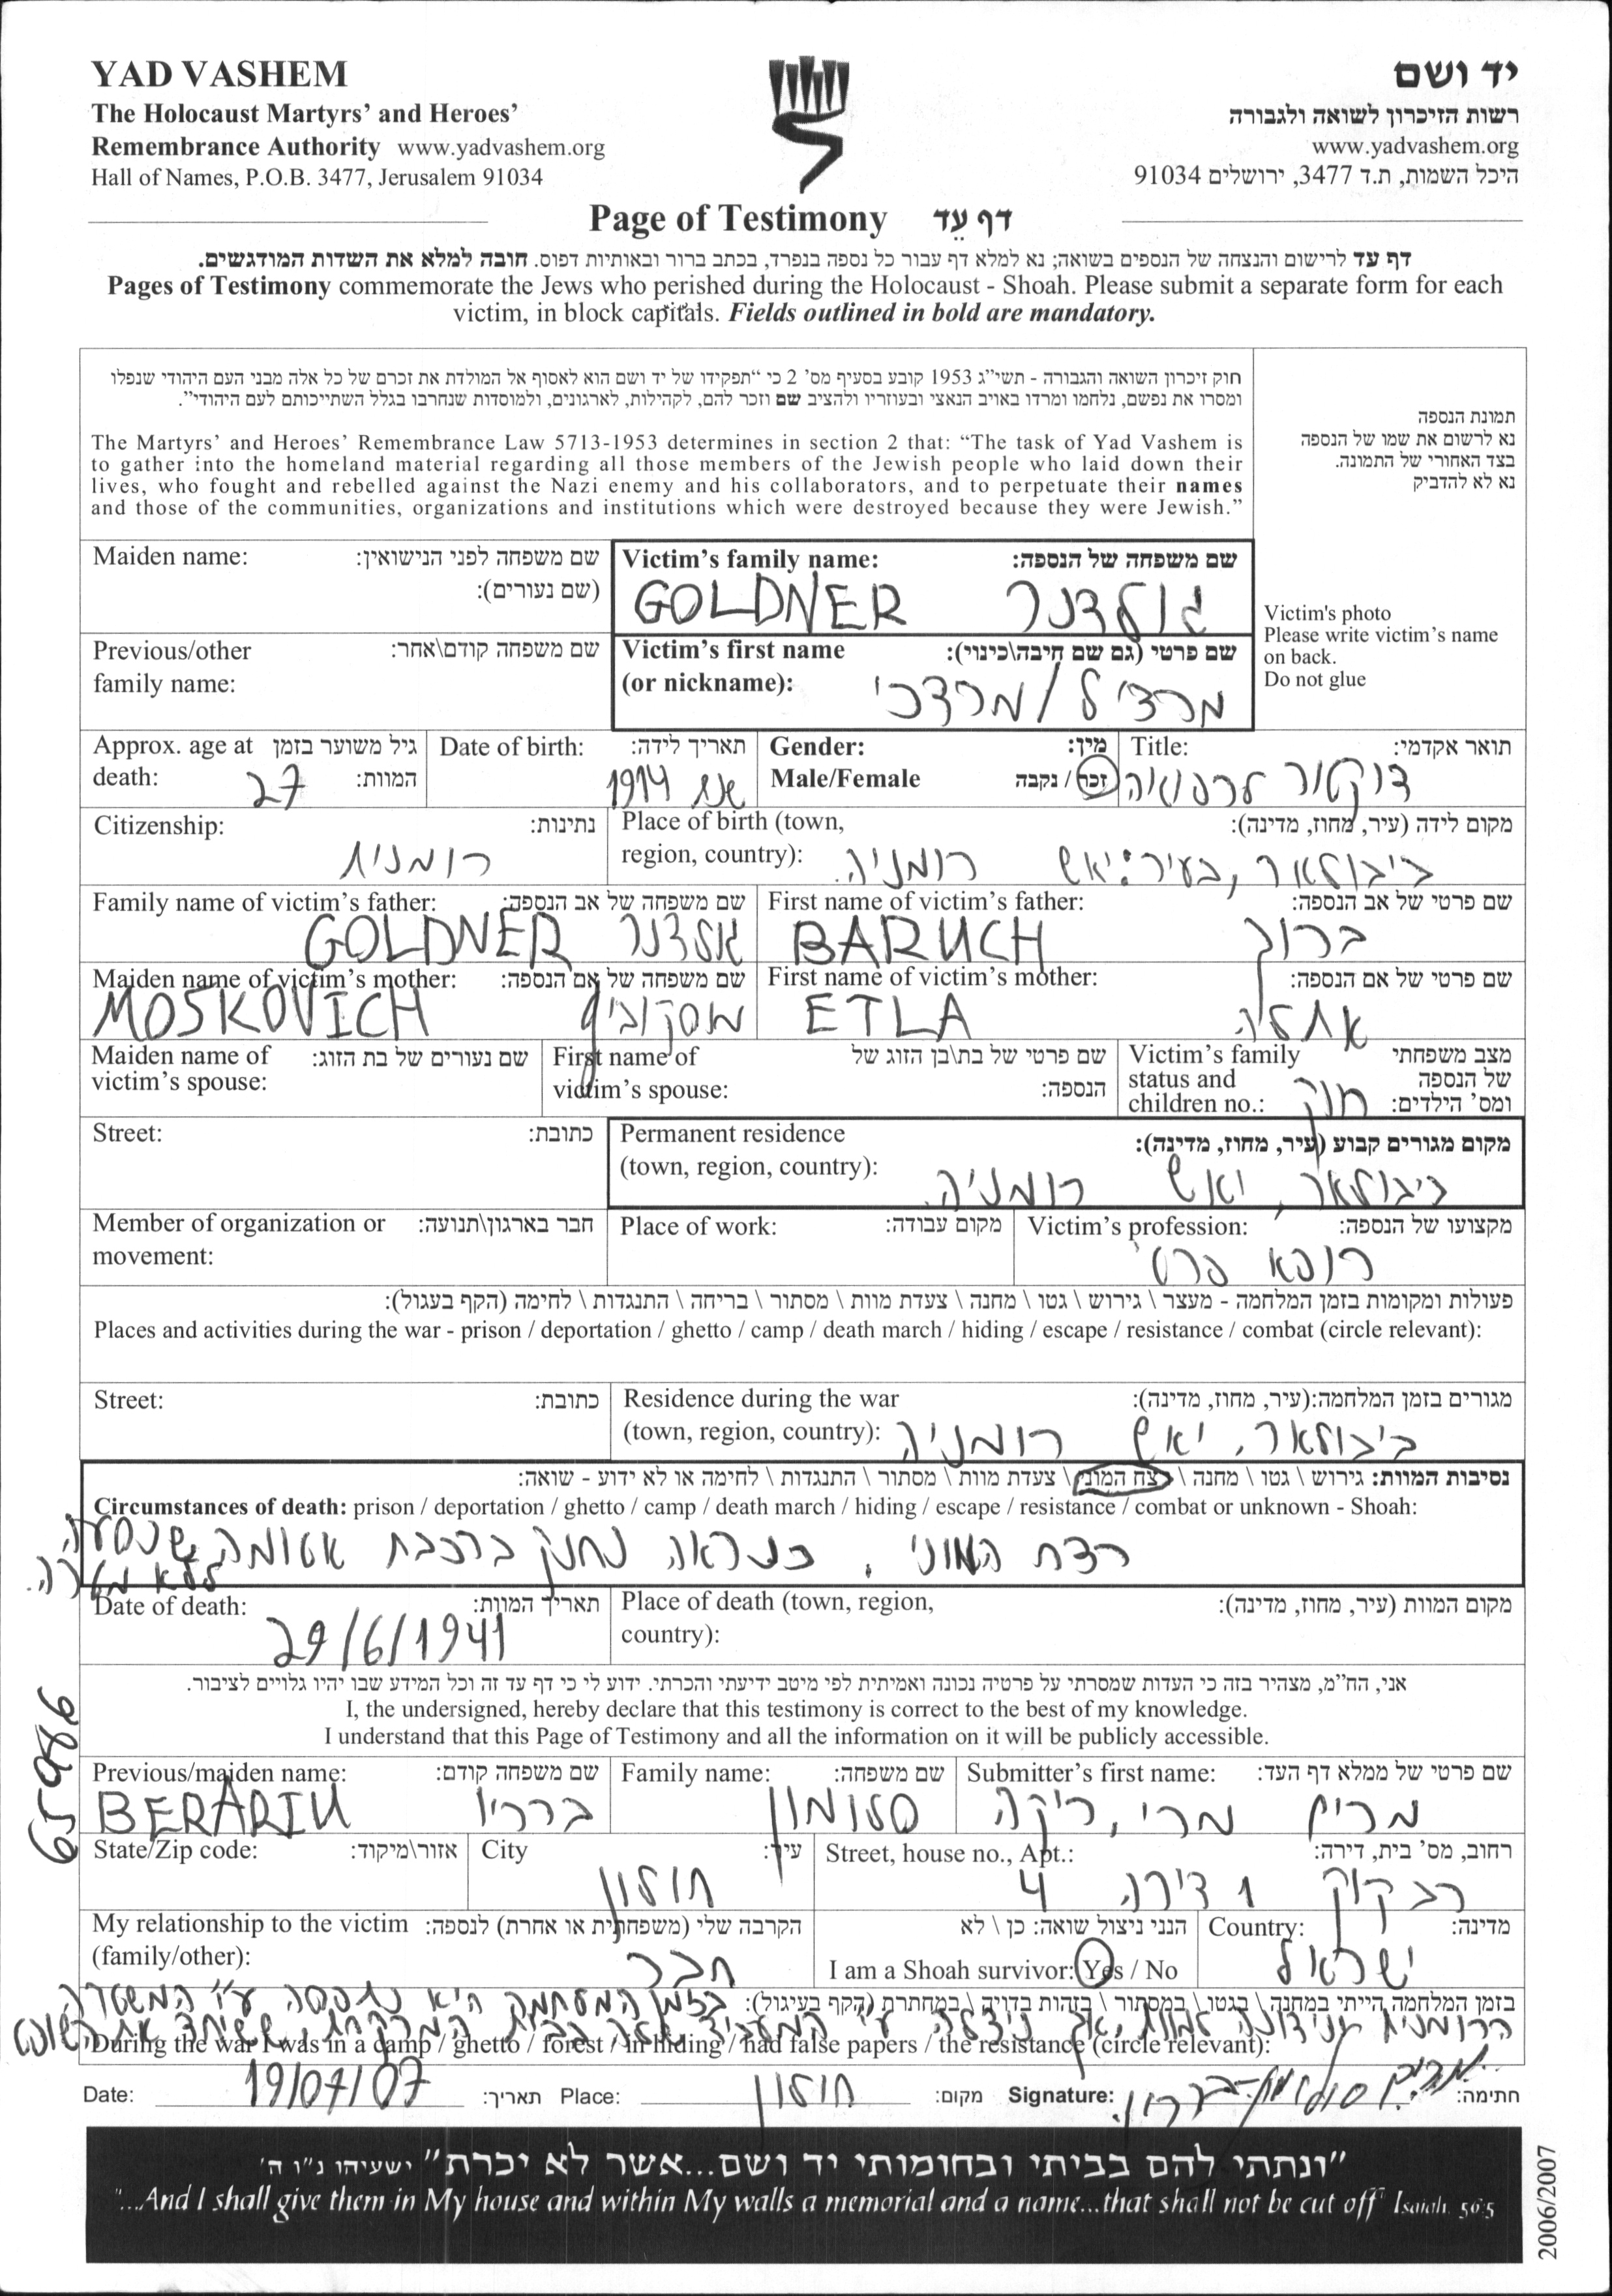 YAD VASHEM
The Holocaust Martyrs' and Heroes'
Remembrance Authority www.yadvashem.org
Hall of Names, P.O.B. 3477, Jerusalem 91034
יד ושם
רשות הזיכרון לשואה ולגבורה
www.yadvashem.org
היכל השמות, ת.ד 3477, ירושלים 91034
Page of Testimony דף עֵד
דף עד לרישום והנצחה של הנספים בשואה; נא למלא דף עבור כל נספה בנפרד, בכתב ברור ובאותיות דפוס. חובה למלא את השדות המודגשים.
Pages of Testimony commemorate the Jews who perished during the Holocaust - Shoah. Please submit a separate form for each
victim, in block capitals. Fields outlined in bold are mandatory.
חוק זיכרון השואה והגבורה - תשי"ג 1953 קובע בסעיף מס' 2 כי "תפקידו של יד ושם הוא לאסוף אל המולדת את זכרם של כל אלה מבני העם היהודי שנפלו
ומסרו את נפשם, נלחמו ומרדו באויב הנאצי ובעוזריו ולהציב שם וזכר להם, לקהילות, לארגונים, ולמוסדות שנחרבו בגלל השתייכותם לעם היהודי".
The Martyrs' and Heroes' Remembrance Law 5713-1953 determines in section 2 that: "The task of Yad Vashem is
to gather into the homeland material regarding all those members of the Jewish people who laid down their
lives, who fought and rebelled against the Nazi enemy and his collaborators, and to perpetuate their names
and those of the communities, organizations and institutions which were destroyed because they were Jewish."
תמונת הנספה
נא לרשום את שמו של הנספה
בצד האחורי של התמונה.
נא לא להדביק
Victim's photo
Please write victim's name
on back.
Do not glue
Maiden name: שם משפחה לפני הנישואין:
(שם נעורים):
Victim's family name: שם משפחה של הנספה:
GOLDNER גולדנר
Previous/other שם משפחה קודם\אחר:
family name:
Victim's first name שם פרטי (גם שם חיבה\כינוי):
(or nickname): מרצל/מרדכי
Approx. age at גיל משוער בזמן
death: 27 המוות:
Date of birth: תאריך לידה:
1914
Gender: מין:
Male/Female זכר / נקבה
Title: תואר אקדמי:
דוקטור לרפואה
Citizenship: נתינות:
רומנית
Place of birth (town, מקום לידה (עיר, מחוז, מדינה):
region, country): בעיר: יאש רומניה.
Family name of victim's father: שם משפחה של אב הנספה:
GOLDNER גולדנר
First name of victim's father: שם פרטי של אב הנספה:
BARUCH ברוך
Maiden name of victim's mother: שם משפחה של אם הנספה:
MOSKOVICH מוסקוביץ
First name of victim's mother: שם פרטי של אם הנספה:
ETLA אתלה
Maiden name of שם נעורים של בת הזוג:
victim's spouse:
First name of שם פרטי של בת\בן הזוג של
victim's spouse: הנספה:
Victim's family מצב משפחתי
status and של הנספה
children no.: ומס' הילדים: רווק
Street: כתובת:
Permanent residence מקום מגורים קבוע (עיר, מחוז, מדינה):
(town, region, country): יאש רומניה.
Member of organization or חבר בארגון\תנועה:
movement:
Place of work: מקום עבודה:
Victim's profession: מקצועו של הנספה:
רופא פרטי
פעולות ומקומות בזמן המלחמה - מעצר \ גירוש \ גטו \ מחנה \ צעדת מוות \ מסתור \ בריחה \ התנגדות \ לחימה (הקף בעגול):
Places and activities during the war - prison / deportation / ghetto / camp / death march / hiding / escape / resistance / combat (circle relevant):
Street: כתובת:
Residence during the war מגורים בזמן המלחמה:(עיר, מחוז, מדינה):
(town, region, country): יאש רומניה
נסיבות המוות: גירוש \ גטו \ מחנה \ רצח המוני \ צעדת מוות \ מסתור \ התנגדות \ לחימה או לא ידוע - שואה:
Circumstances of death: prison / deportation / ghetto / camp / death march / hiding / escape / resistance / combat or unknown - Shoah:
רצח המוני, כנראה נחנק ברכבת אטומה שנסעה
ללא מטרה.
Date of death: תאריך המוות:
29/6/1941
Place of death (town, region, מקום המוות (עיר, מחוז, מדינה):
country):
אני, הח"מ, מצהיר בזה כי העדות שמסרתי על פרטיה נכונה ואמיתית לפי מיטב ידיעתי והכרתי. ידוע לי כי דף עד זה וכל המידע שבו יהיו גלויים לציבור.
I, the undersigned, hereby declare that this testimony is correct to the best of my knowledge.
I understand that this Page of Testimony and all the information on it will be publicly accessible.
65986
Previous/maiden name: שם משפחה קודם:
BERARIU ברריו
Family name: שם משפחה:
סולומון
Submitter's first name: שם פרטי של ממלא דף העד:
מרים מרי, ריקה
State/Zip code: אזור\מיקוד:
City עיר:
חולון
Street, house no., Apt.: רחוב, מס' בית, דירה:
רב קוק 1 דירה 4
My relationship to the victim הקרבה שלי (משפחתית או אחרת) לנספה:
(family/other): חבר
הנני ניצול שואה: כן \ לא
I am a Shoah survivor: Yes / No
Country: מדינה:
ישראל
בזמן המלחמה הייתי במחנה \ בגטו \ במסתור \ בזהות בדויה \ במחתרת (הקף בעיגול): בזמן המלחמה היא נתפסה ע"י המשטרה
During the war I was in a camp / ghetto / forest / in hiding / had false papers / the resistance (circle relevant):
Date: 19/07/07 תאריך: Place: חולון מקום: Signature: חתימה:
"ונתתי להם בביתי ובחומותי יד ושם...אשר לא יכרת" ישעיהו נ"ו ה'
"...And I shall give them in My house and within My walls a memorial and a name...that shall not be cut off" Isaiah, 56:5
2006/2007